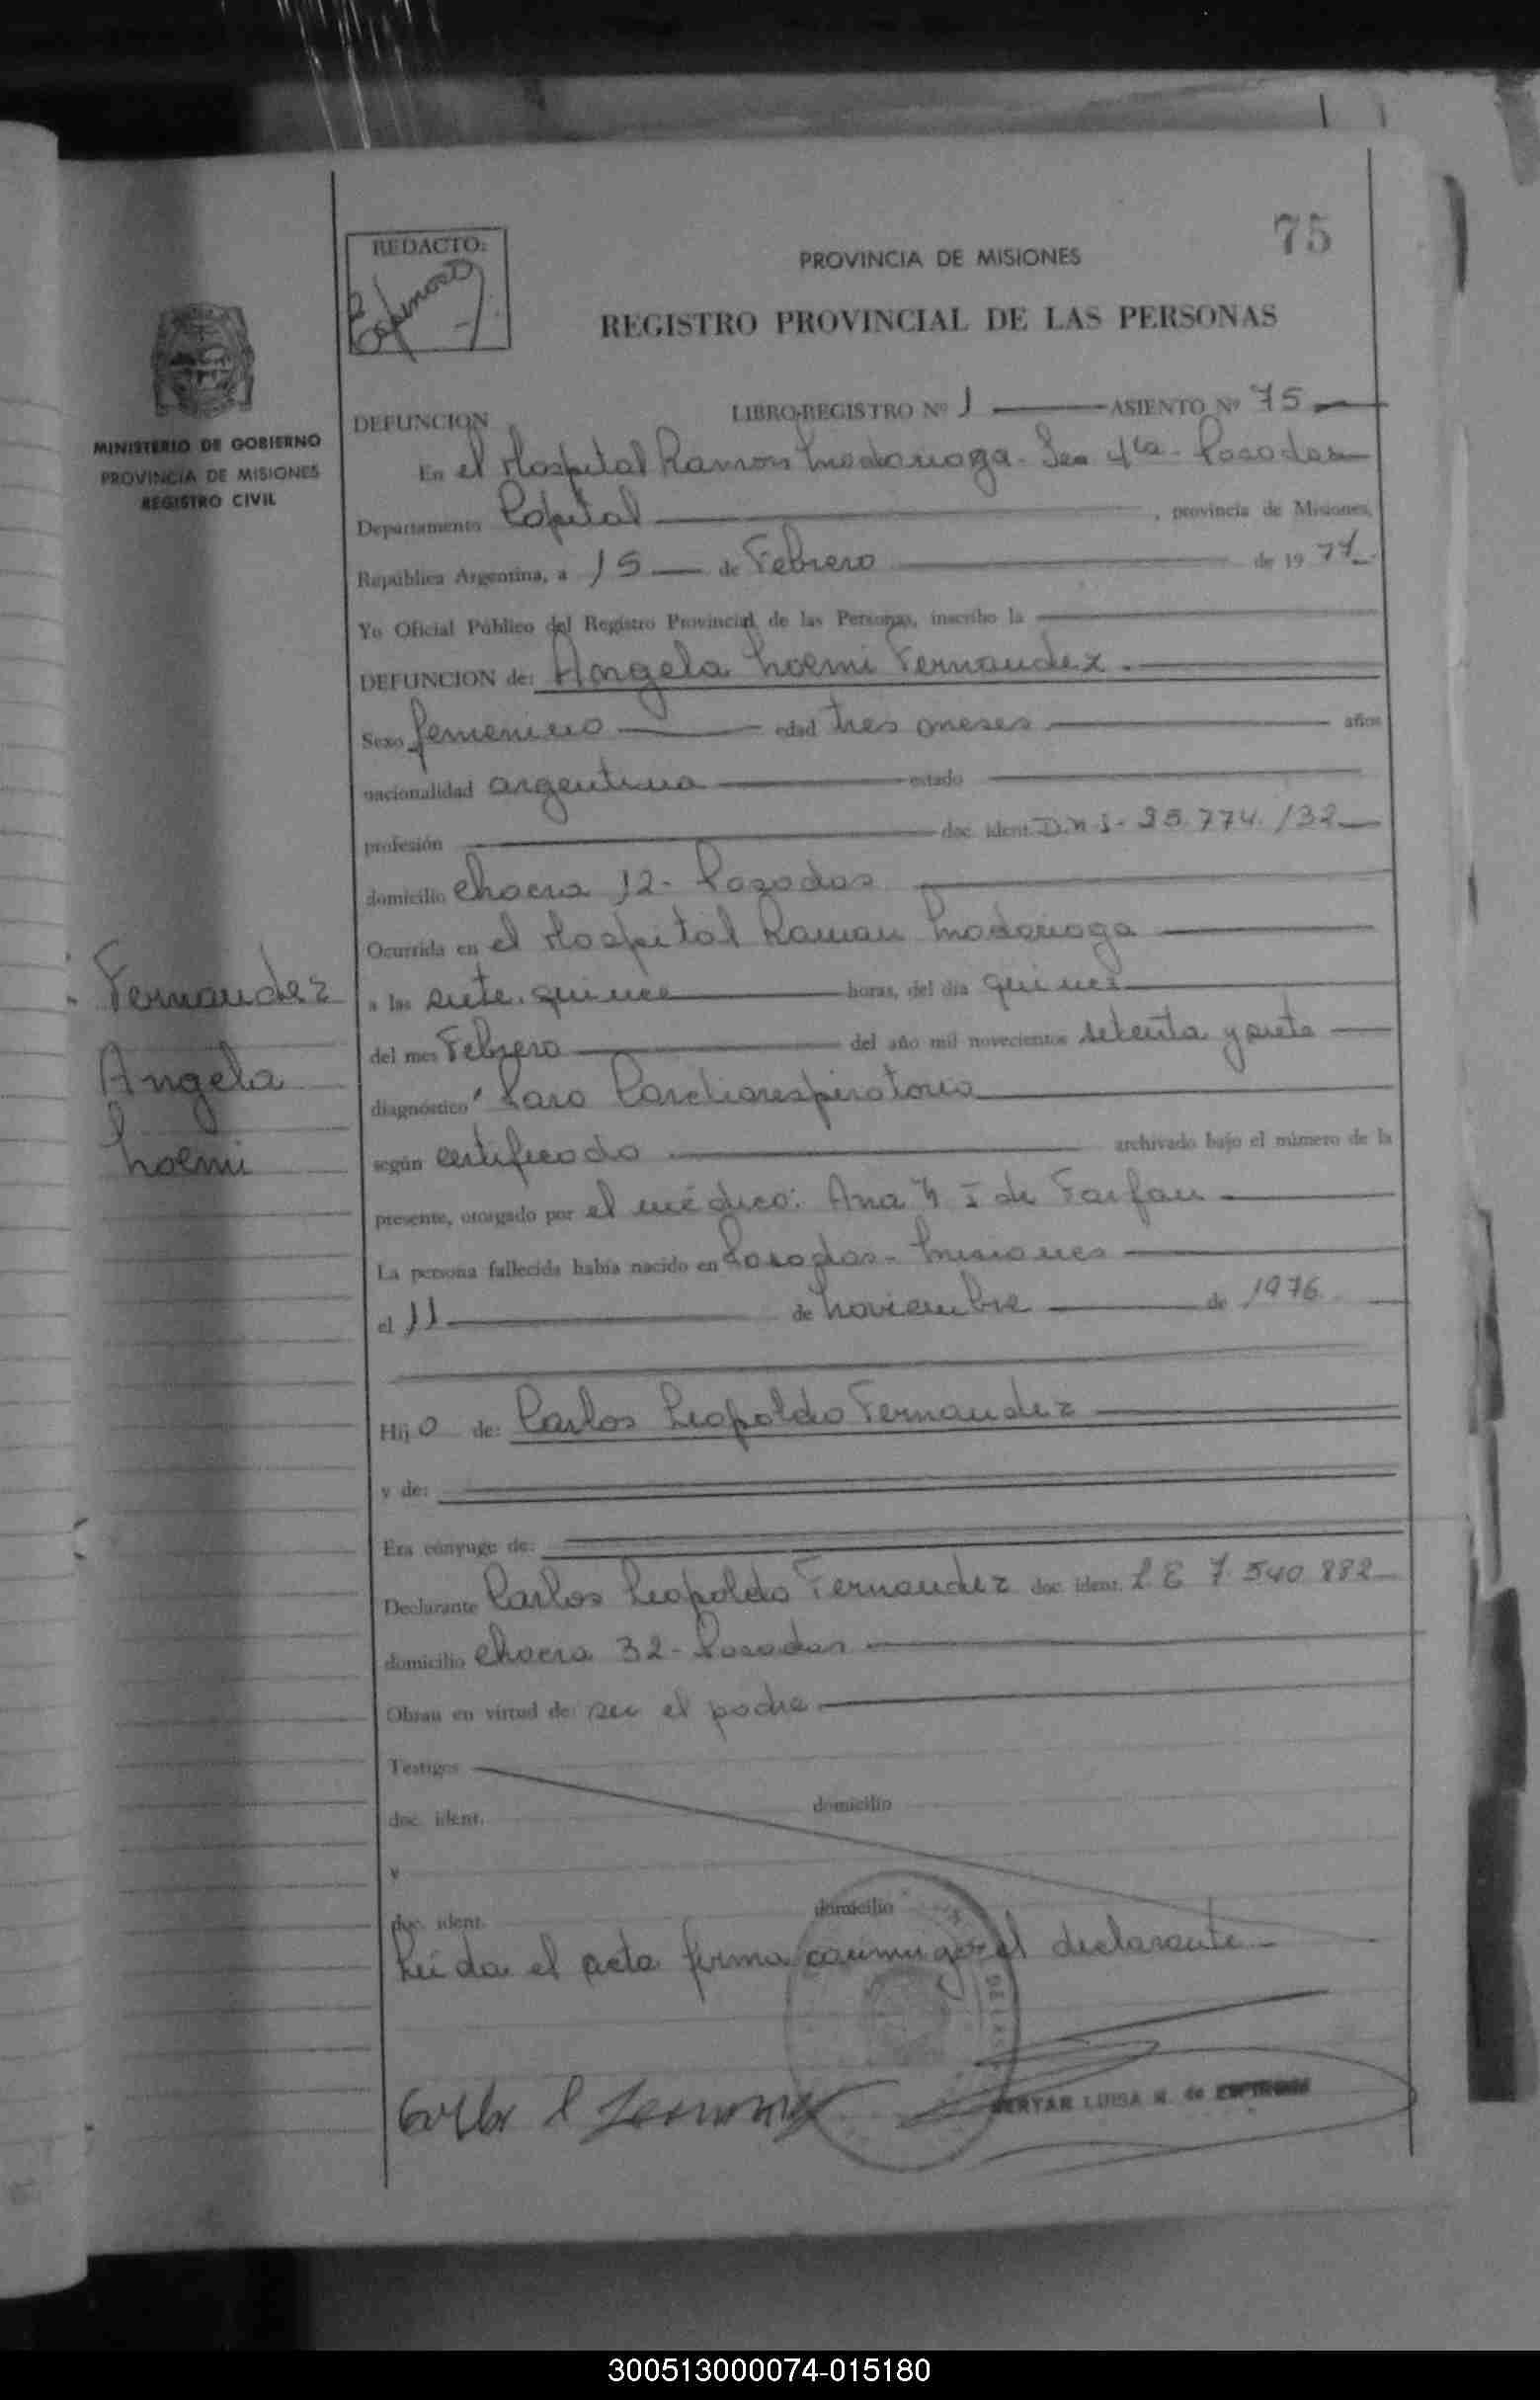 75
REDACTO:
Espinosa
PROVINCIA DE MISIONES
REGISTRO PROVINCIAL DE LAS PERSONAS
MINISTERIO DE GOBIERNO
PROVINCIA DE MISIONES
REGISTRO CIVIL
DEFUNCION
LIBRO-REGISTRO Nº 1 ASIENTO Nº 75
En el Hospital Ramon Madariaga - Sec 4ta - Posadas
Departamento Capital, provincia de Misiones,
República Argentina, a 15 de Febrero de 1977
Yo Oficial Público del Registro Provincial de las Personas, inscribo la
DEFUNCION de: Angela Noemi Fernandez.
Sexo femenino edad tres meses años
nacionalidad argentina estado
profesión doc. ident. D.N.I- 25.774.132
domicilio Chacra 12- Posadas
Ocurrida en el Hospital Ramon Madariaga
a las siete. quince horas, del día quince
del mes Febrero del año mil novecientos setenta y siete
diagnóstico Paro Cardiorespiratorio
según certificado archivado bajo el número de la
presente, otorgado por el médico: Ana I de Farfan
La persona fallecida había nacido en Posadas - Misiones
el 11 de Noviembre de 1976
Hijo de: Carlos Leopoldo Fernandez
y de:
Era cónyuge de:
Declarante Carlos Leopoldo Fernandez doc. ident. L E 7.540.882
domicilio Chacra 32- Posadas
Obran en virtud de: ser el padre
Testigos
doc. ident. domicilio
y
doc. ident. domicilio
Leida el acta firma conmigo el declarante
Fernandez
Angela
Noemi
LUISA N. de
300513000074-015180